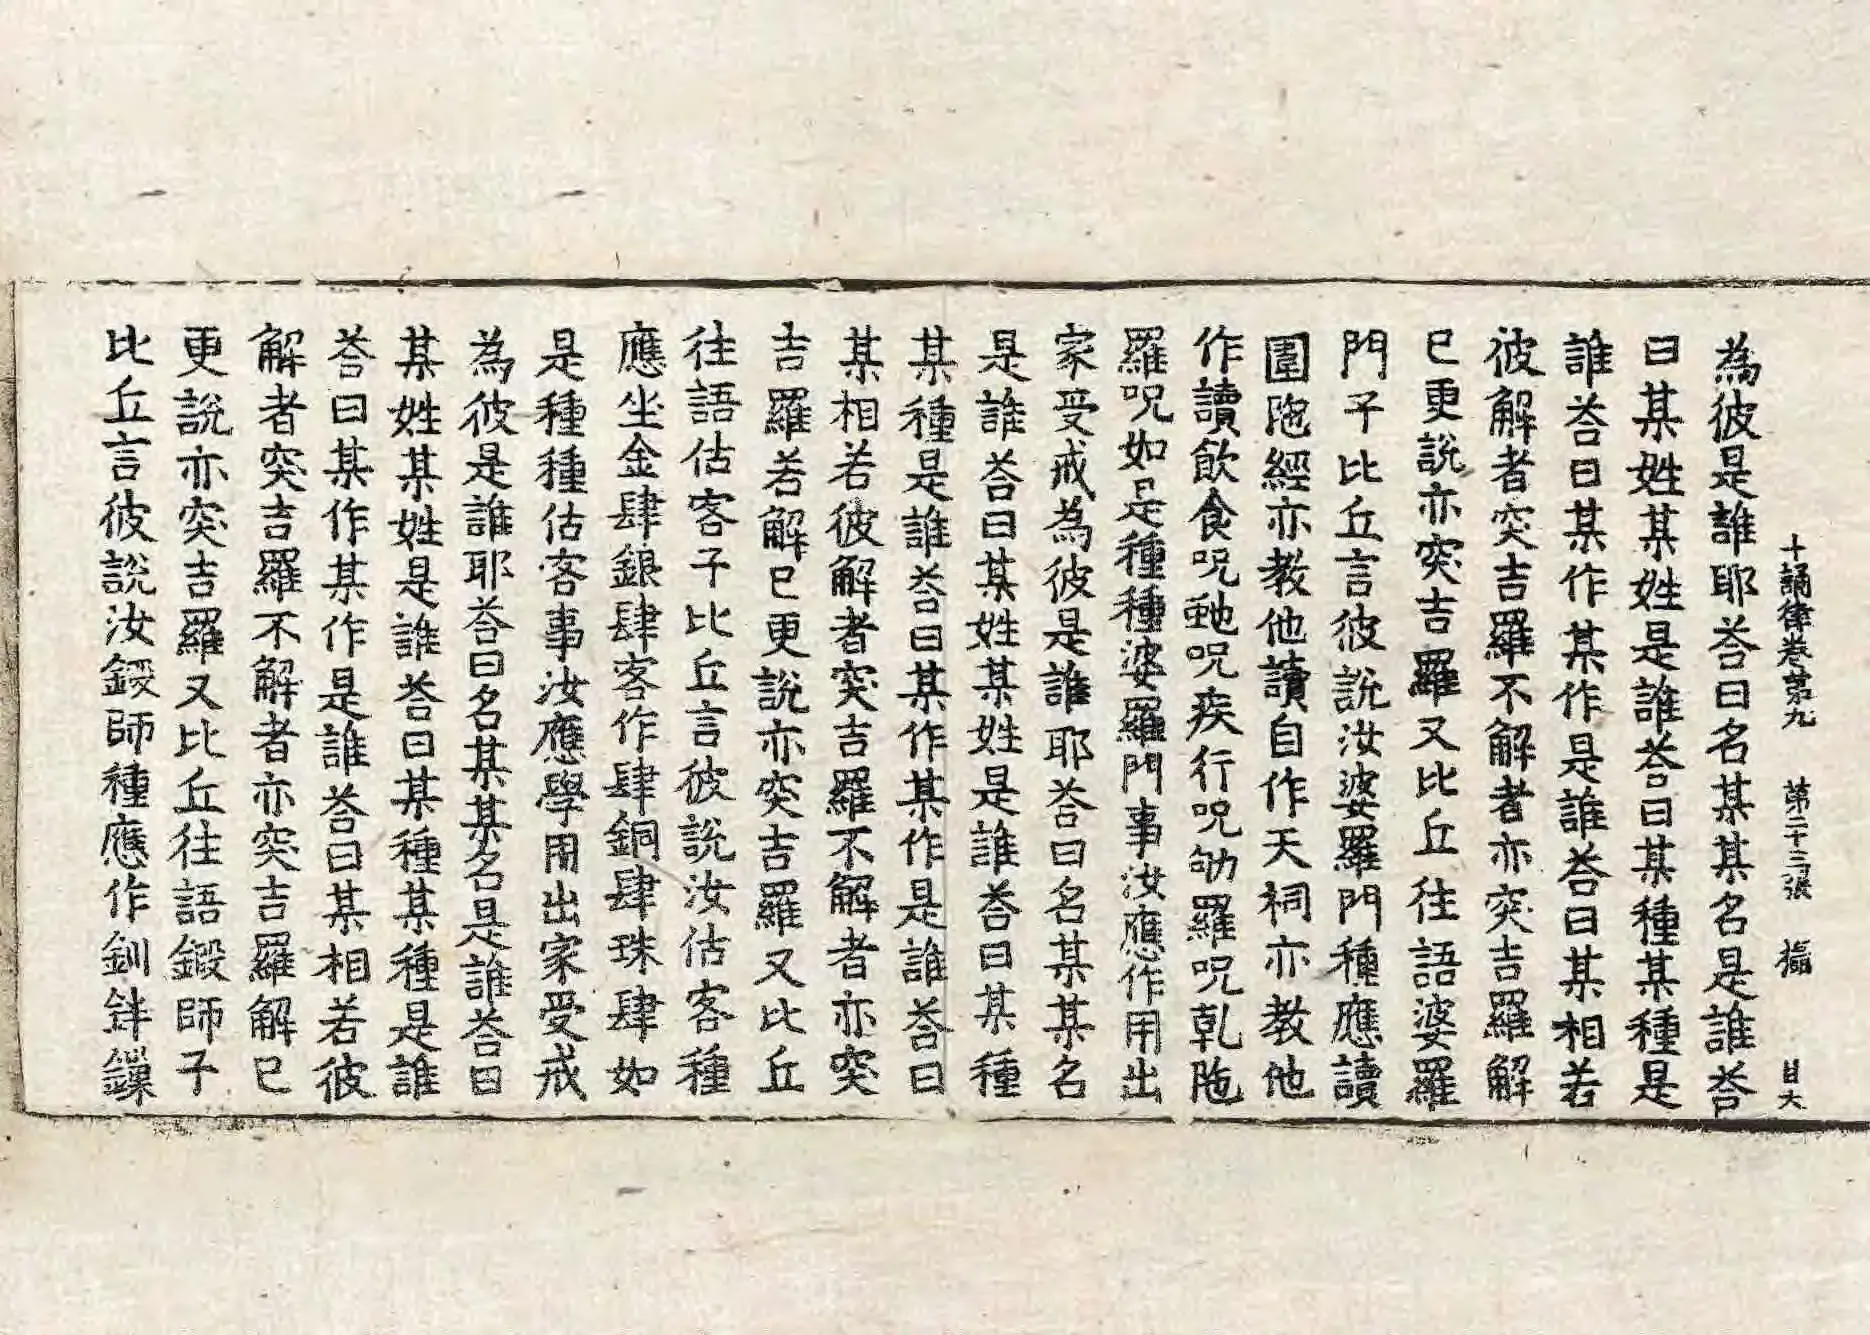 十誦律卷第九 第二十三張 攝 日大
為彼是誰耶荅曰名某某名是誰荅
曰某姓某姓是誰荅曰某種某種是
誰荅曰某作某作是誰荅曰某相若
彼解者突吉羅不解者亦突吉羅解
已更說亦突吉羅又比丘往語婆羅
門子比丘言彼說汝婆羅門種應讀
圍陁經亦教他讀自作天祠亦教他
作讀飲食呪虵呪疾行呪劬羅呪乹陁
羅呪如是種種婆羅門事汝應作用出
家受戒為彼是誰耶荅曰名某某名
是誰荅曰某姓某姓是誰荅曰某種
某種是誰荅曰某作某作是誰荅曰
某相若彼解者突吉羅不解者亦突
吉羅若解已更說亦突吉羅又比丘
往語估客子比丘言彼說汝估客種
應坐金肆銀肆客作肆銅肆珠肆如
是種種估客事汝應學用出家受戒
為彼是誰耶荅曰名某某名是誰荅曰
某姓某姓是誰荅曰某種某種是誰
荅曰某作某作是誰荅曰某相若彼
解者突吉羅不解者亦突吉羅解已
更說亦突吉羅又比丘往語鍛師子
比丘言彼說汝鍛師種應作釧鉡鏁